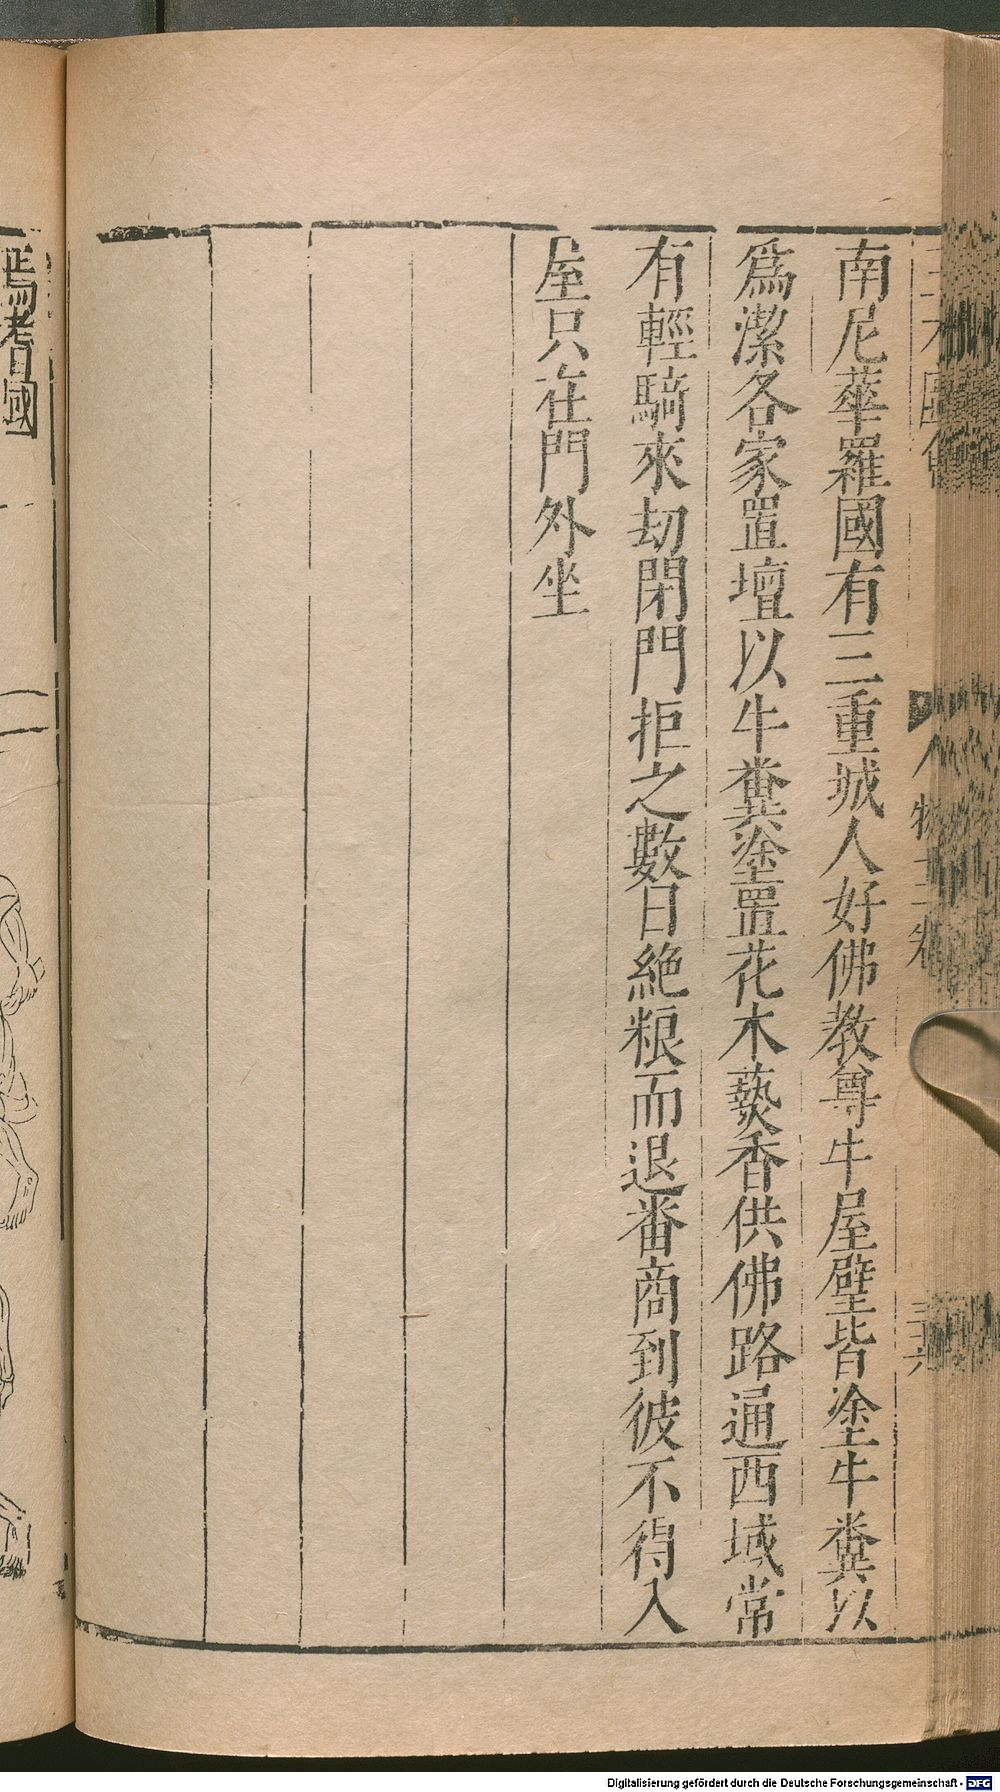 三才圖會
人物十三卷
三六
南尼華羅國有三重城人好佛教尊牛屋壁皆塗牛糞以
爲潔各家置壇以牛糞塗置花木爇香供佛路通西域常
有輕騎來劫閉門拒之數日絶粮而退番商到彼不得入
屋只在門外坐
焉耆國
Digitalisierung gefördert durch die Deutsche Forschungsgemeinschaft - DFG